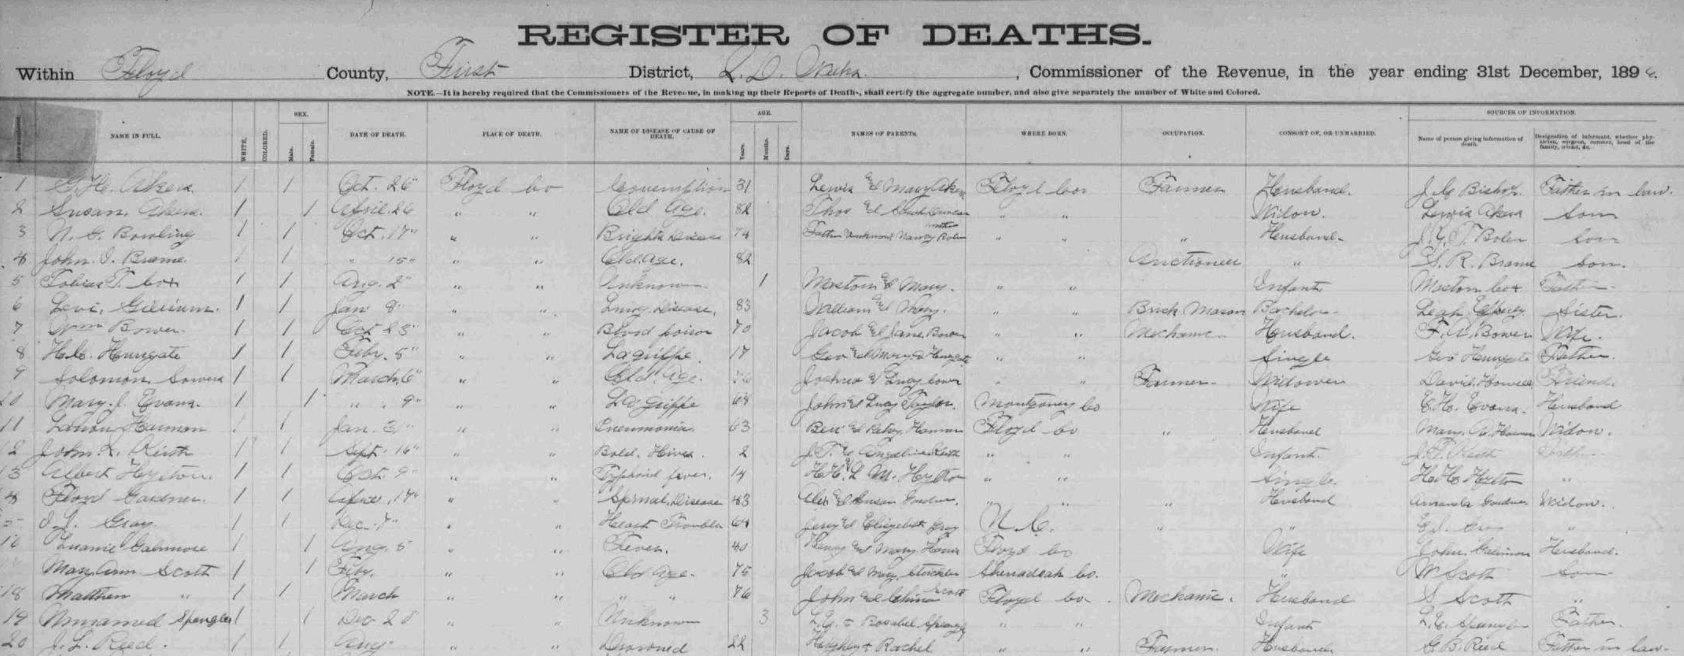 REGISTER OF DEATHS.
Within Floyd County, First District, , Commissioner of the Revenue, in the year ending 31st December, 189
NOTE.—It is hereby required that the Commissioners of the Revenue, in making up their Reports of Deaths, shall certify the aggregate number, and also give separately the number of White and Colored.
SEX. AGE. SOURCES OF INFORMATION.
NAME IN FULL. WHITE. COLORED. Male. Female. DATE OF DEATH. PLACE OF DEATH. NAME OF DISEASE OF CAUSE OF DEATH. Years. Months. Days. NAMES OF PARENTS. WHERE BORN. OCCUPATION. CONSORT OF, OR UNMARRIED. Name of person giving information of death. Designation of informant, whether physician, surgeon, coroner, head of the family, friend, &c.
1 Akers 1 1 Oct. 26" Floyd Co Consumption 31 Lewis & Mary Akers Floyd Co Farmer Husband J. Bishop Father in law
2 Susan Akers. 1 1 April 26 " " Old Age. 82 Thos & " " Widow. Lewis Akers Son
3 N. G. Bowling 1 1 Oct. 17" " " Brights Disease 74 Father unknown Nancy mother " " " Husband Son
4 John Brame 1 1 " 15" " " Old Age. 82 Auctioneer " S. R. Brame Son.
5 Tobias T. Cox 1 1 Aug. 2" " " Unknown 1 Mastom & Mary. " " Infant Mastom Cox Father
6 Levi 1 1 Jan 8" " " Disease, 83 William & Mary. " " Brick Mason Bachelor Leah Sister
7 Wm Bower 1 1 Oct 23" " " Blood poison 70 Jacob & Jane Bower " " Mechanic Husband. F. A. Bower Wife.
8 Hungate 1 1 Feby. 5" " " Lagriffe. 17 Geo & Mary Hungate " " Single Geo Hungate Father.
9 Solomon Sowers 1 1 March 6" " " Old Age. 76 Joshua & Lucy Sower " " Farmer Widower David Howell Friend.
10 Mary J. Evans. 1 1 " 9" " " La Griffe 68 John & Lucy Taylor. Montgomery Co Wife Evans. Husband
11 Harman 1 1 Jan. " " Pneumonia. 63 Ben & Betsy Harman Floyd Co " Husband Mary A. Harman Widow.
12 John R. Keith 1 1 Sept. 16" " " Bold Hives. 2 J. T. & Angelina Keith " " Infant J. T. Keith Father
13 Albert Hylton. 1 1 Oct 9" " " Typhoid fever. 14 H. H. & L. M. Hylton " " Single H. H. Hylton "
14 Floyd Gardner. 1 1 April 17" " " Spinal Disease 43 & Susan " " " Husband Amanda Gardner Widow.
15 Gray 1 1 Dec. 7" " " Heart Trouble 64 Jerry & Elizabeth Gray N. C. " " Gray "
16 1 1 Aug. 5 " " Fever. 40 Henry & Mary Floyd Co Wife John Husband.
Mary Ann Scott 1 1 Feby. " " Old Age. 75 Jacob & Mary Shenadoah Co. " W Scott Son
18 Matthew " 1 1 March " " " " 76 John & Scott Floyd Co Mechanic. Husband S Scott "
19 Unnamed Spangler 1 1 Dec 25 " " Unknown 3 L. E. & Rosabel Spangler " " Infant L. E. Spangler Father.
20 J. L. Reed. 1 1 Aug " " Drowned 22 & Rachel " " Farmer. Husband G. B. Reed Father in law.